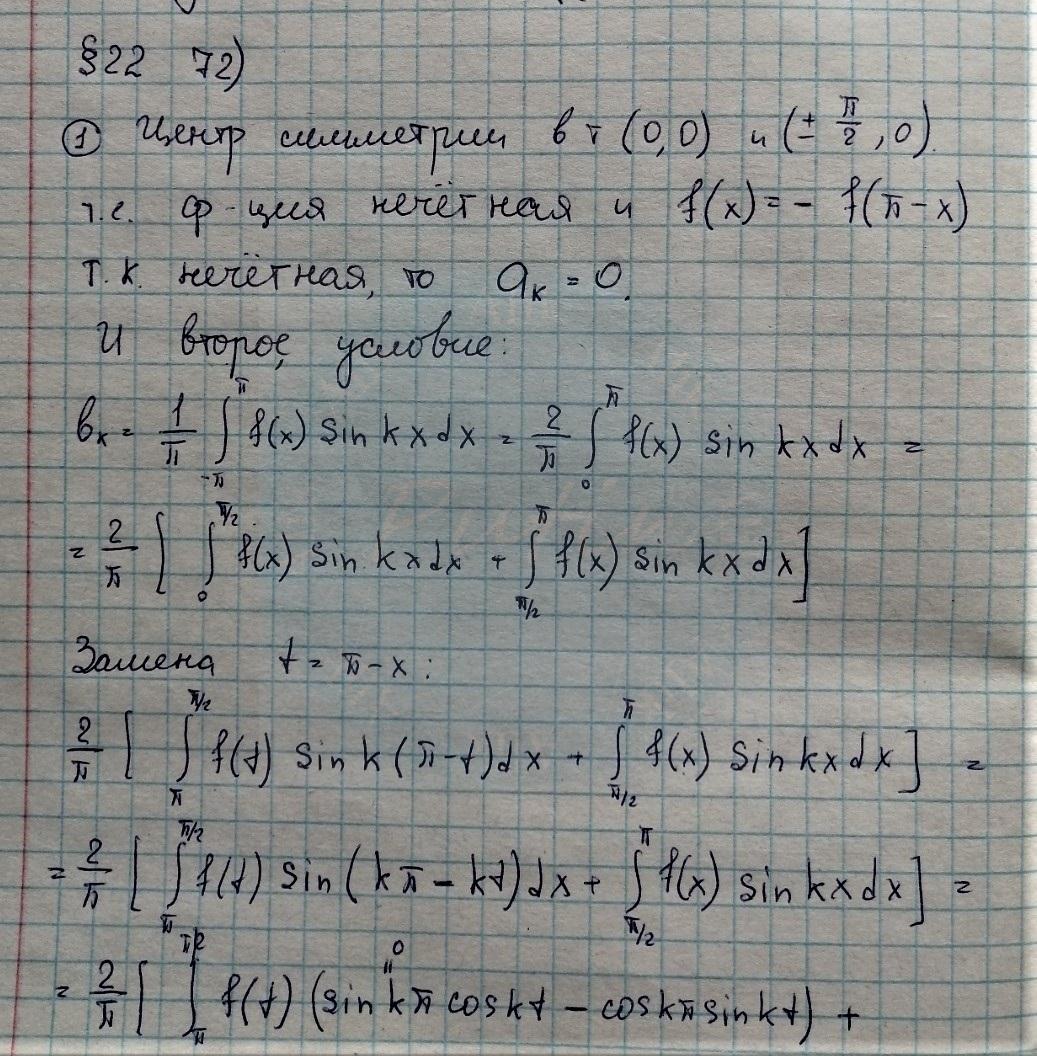 §22 72)
① Центр симметрии в т (0,0) и (± π/2, 0).
т.е. ф-ция нечётная и f(x) = - f(π-x)
т.к. нечётная, то aₖ = 0.
И второе условие:
bₖ = 1/π ∫_{-π}^{π} f(x) sin kx dx = 2/π ∫_0^π f(x) sin kx dx =
= 2/π [ ∫_0^{π/2} f(x) sin kx dx + ∫_{π/2}^π f(x) sin kx dx ]
Замена t = π-x :
2/π [ ∫_π^{π/2} f(t) sin k(π-t)dx + ∫_{π/2}^π f(x) sin kx dx ] =
= 2/π [ ∫_π^{π/2} f(t) sin(kπ - kt)dx + ∫_{π/2}^π f(x) sin kx dx ] =
0
= 2/π [ ∫_π^{π/2} f(t) (sin kπ cos kt - cos kπ sin kt) +